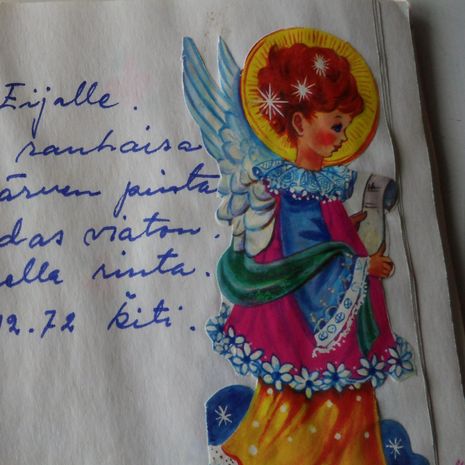 Eijalle.
rauhaisa
ärven pinta
das viaton.
ella rinta.
12.72 kiti.